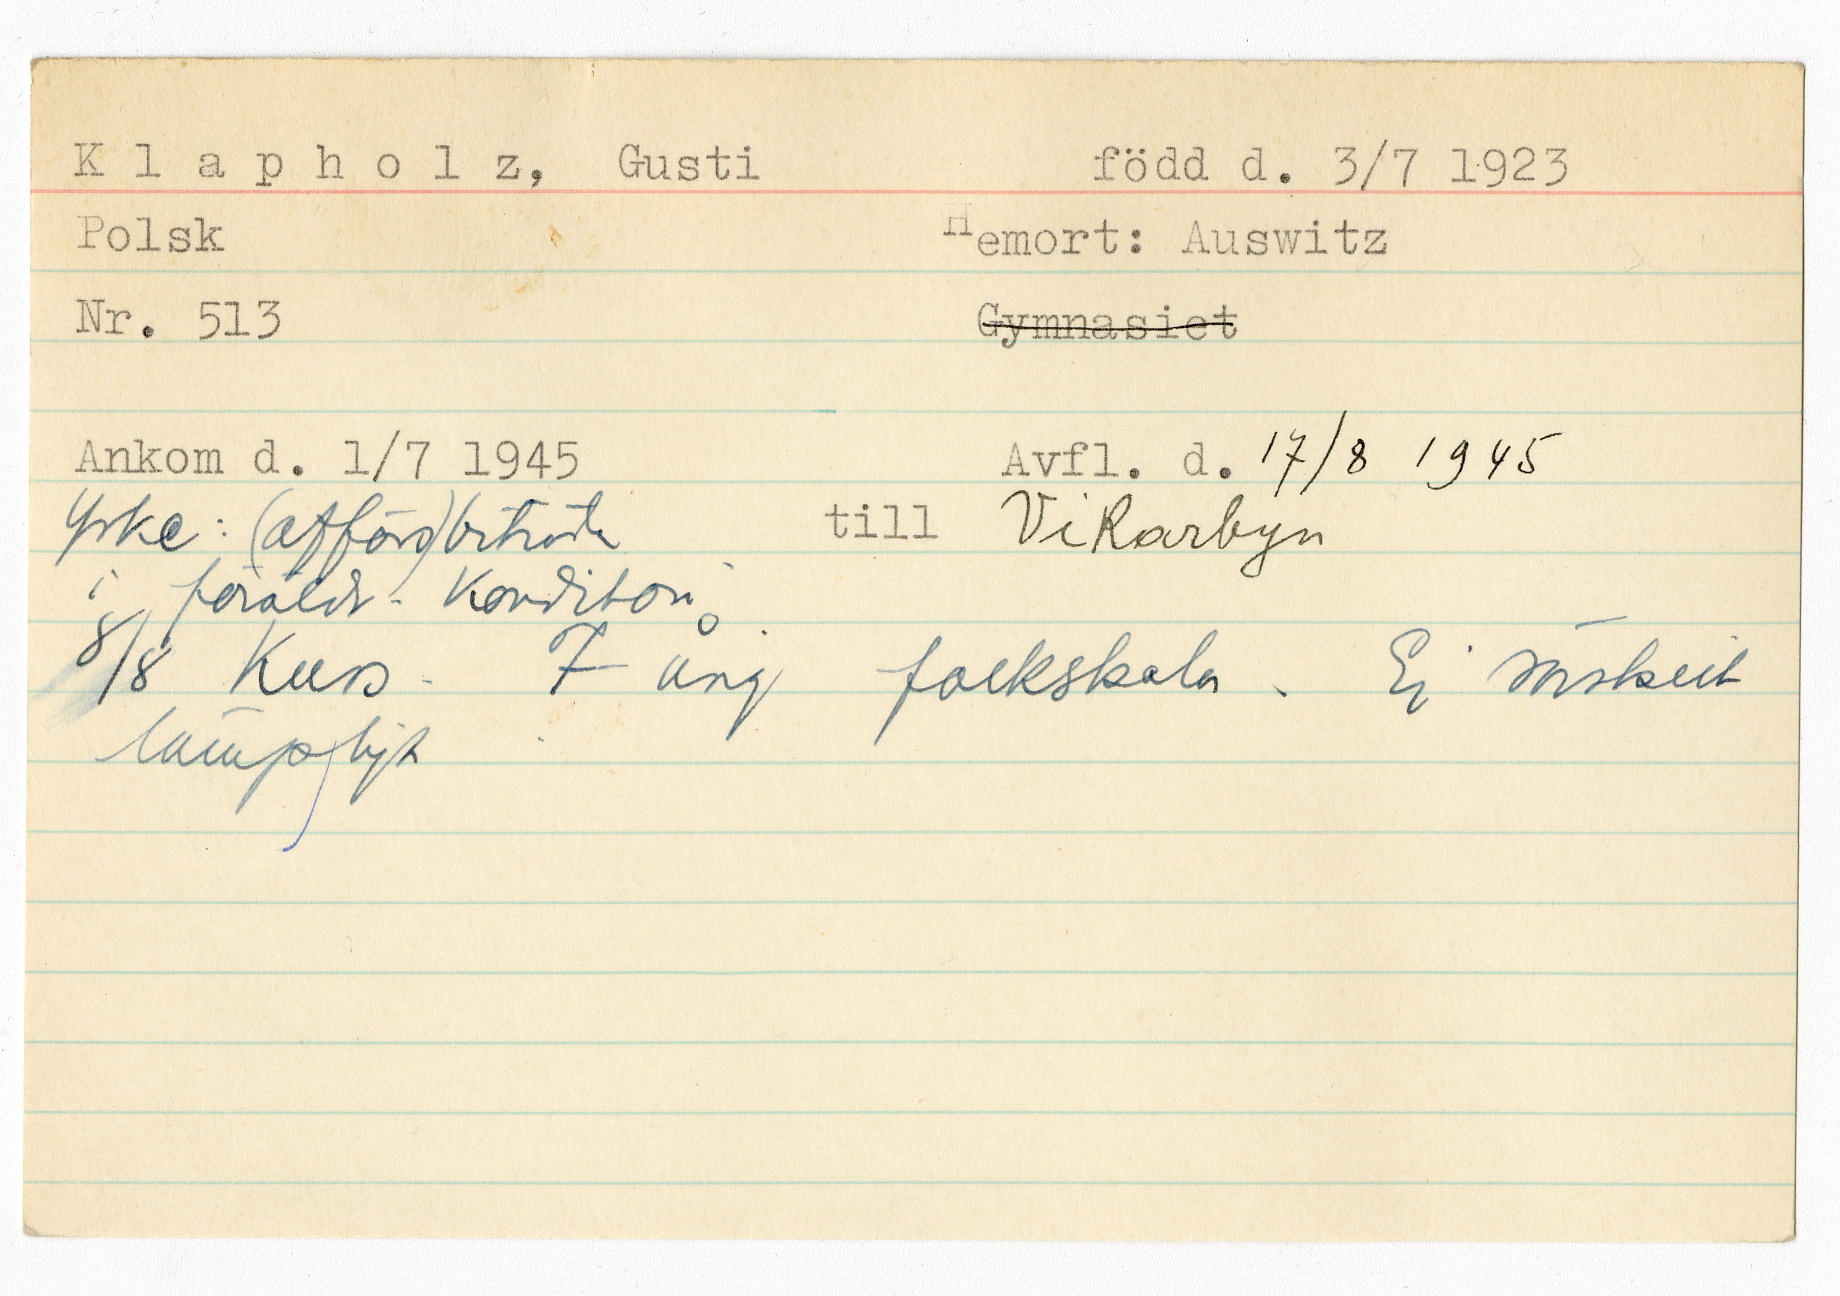 K l a p h o l z, Gusti född d. 3/7 1923
Polsk Hemort: Auswitz
Nr. 513 Gymnasiet
Ankom d. 1/7 1945 Avfl. d. 17/8 1945
Yrke: (affärs)biträde till Vikarbyn
i föräldr. konditori
8/8 Kurs. 7 årig folkskola. Ej särskilt
lämpligt